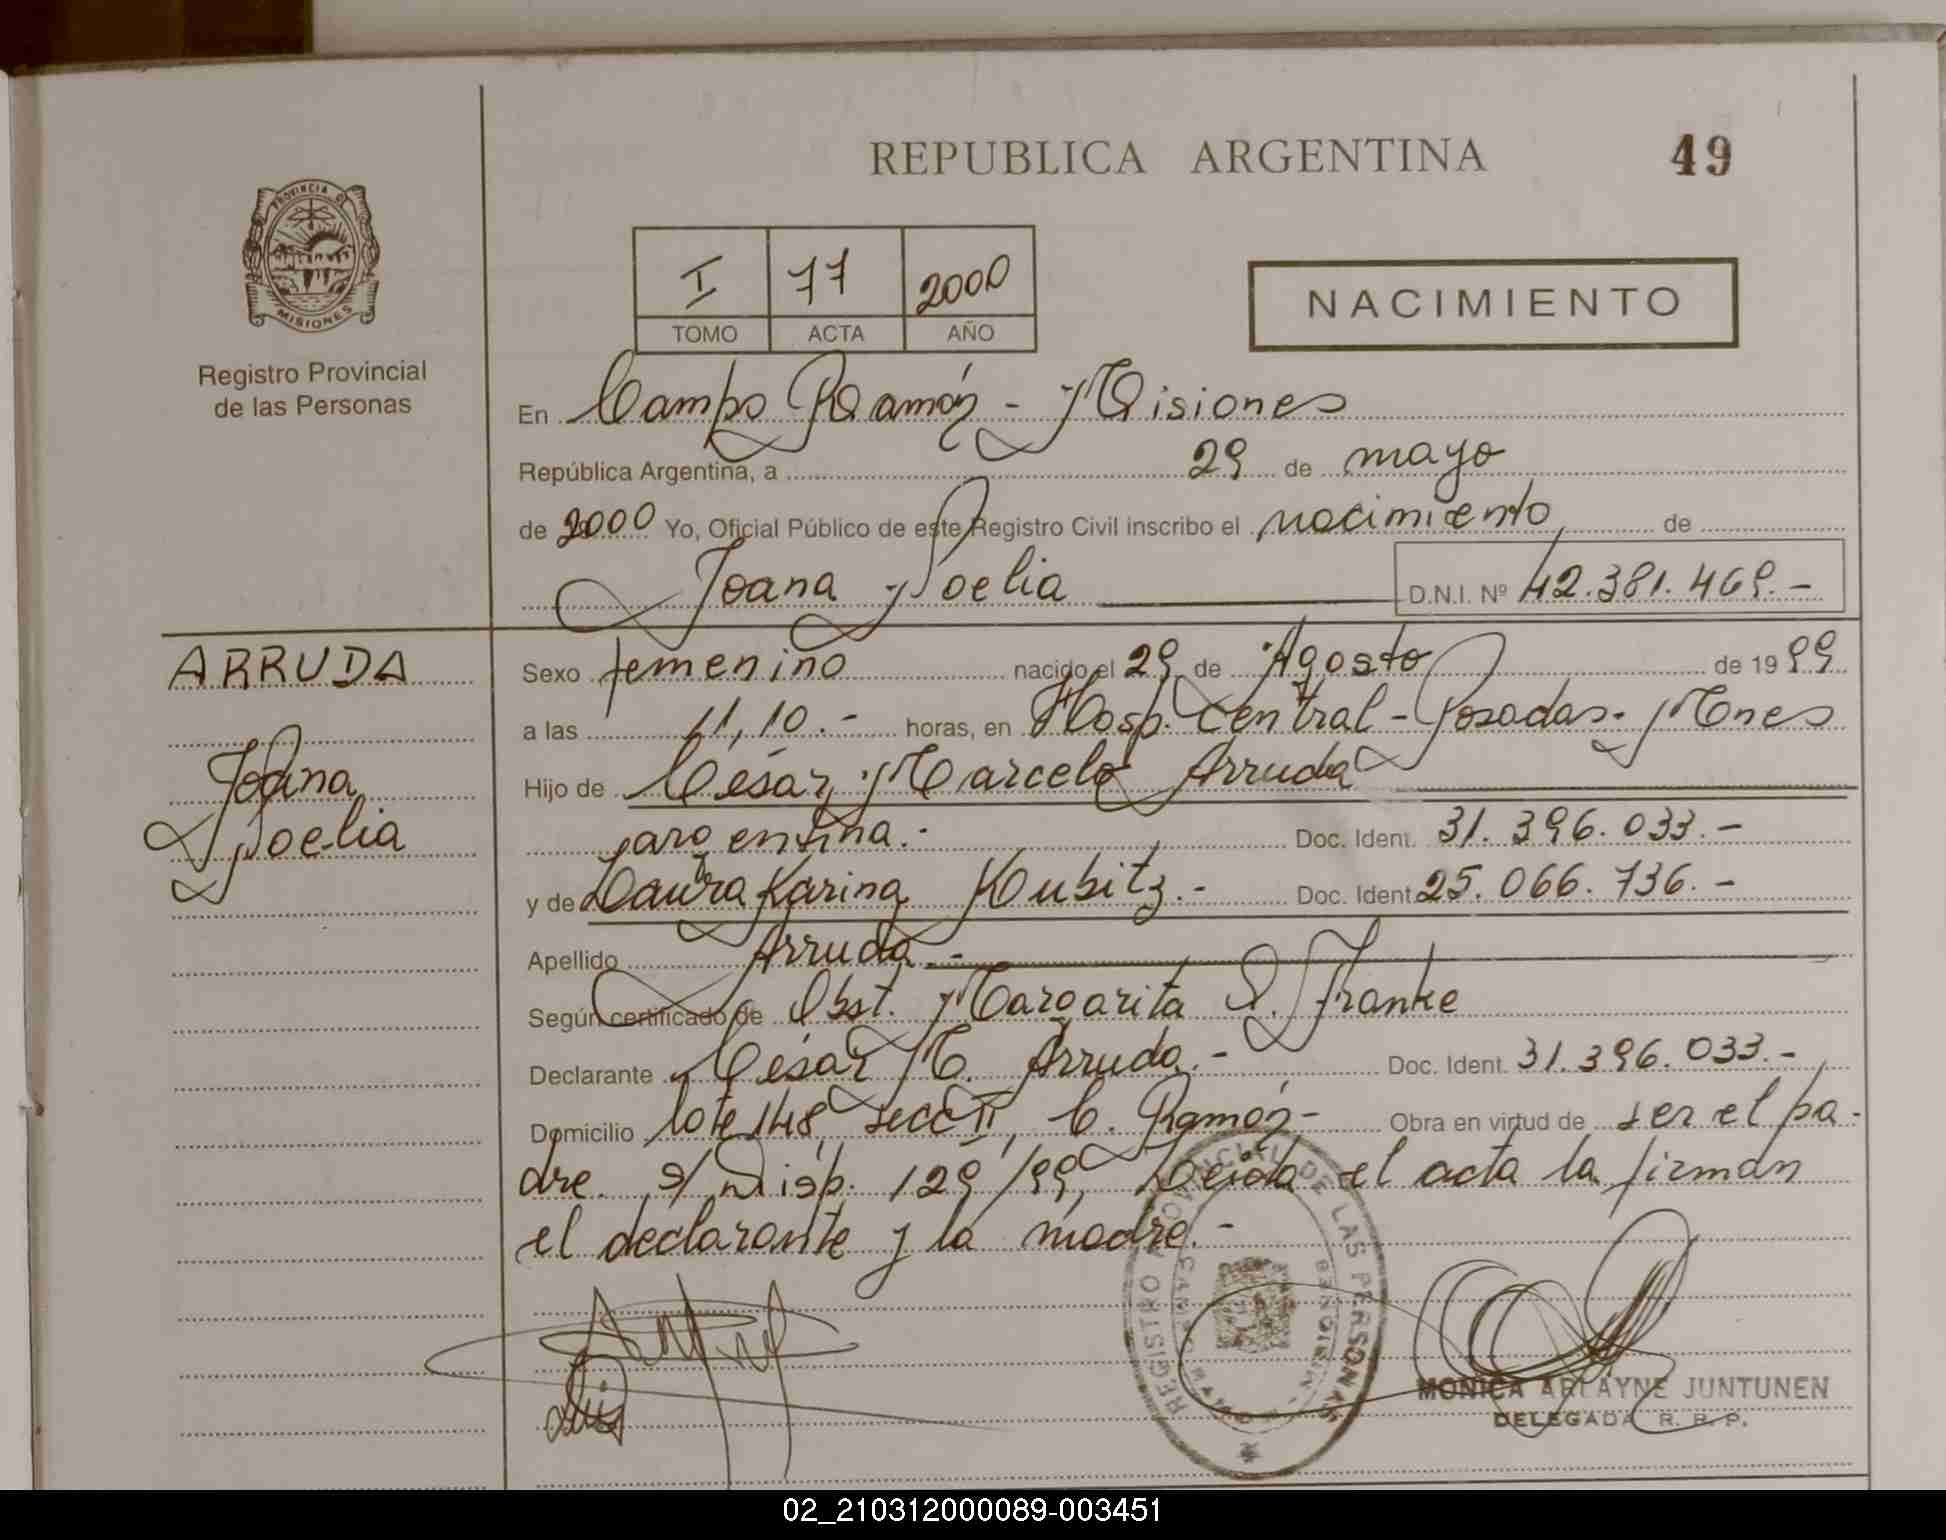 REPUBLICA ARGENTINA
49
PROVINCIA DE
MISIONES
Registro Provincial
de las Personas
I 77 2000
TOMO ACTA AÑO
NACIMIENTO
En Campo Ramón - Misiones
República Argentina, a 29 de mayo
de 2000 Yo, Oficial Público de este Registro Civil inscribo el nacimiento de
Joana Noelia D.N.I. Nº 42.381.469.-
ARRUDA
Joana
Noelia
Sexo femenino nacido el 29 de Agosto de 1999
a las 11,10.- horas, en Hosp. Central - Posadas - Mnes
Hijo de César Marcelo Arruda
argentina.- Doc. Ident. 31.396.033.-
y de Laura Karina Kubitz.- Doc. Ident. 25.066.736.-
Apellido Arruda.-
Según certificado de Obst. Margarita S. Franke
Declarante César M. Arruda.- Doc. Ident. 31.396.033.-
Domicilio lote 148, secc II, C. Ramón- Obra en virtud de ser el pa-
dre. s/Disp. 129/99, Leída el acta la firman
el declarante y la madre.-
REGISTRO PROVINCIAL DE LAS PERSONAS
MONICA ARLAYNE JUNTUNEN
DELEGADA R. P. P.
02_210312000089-003451